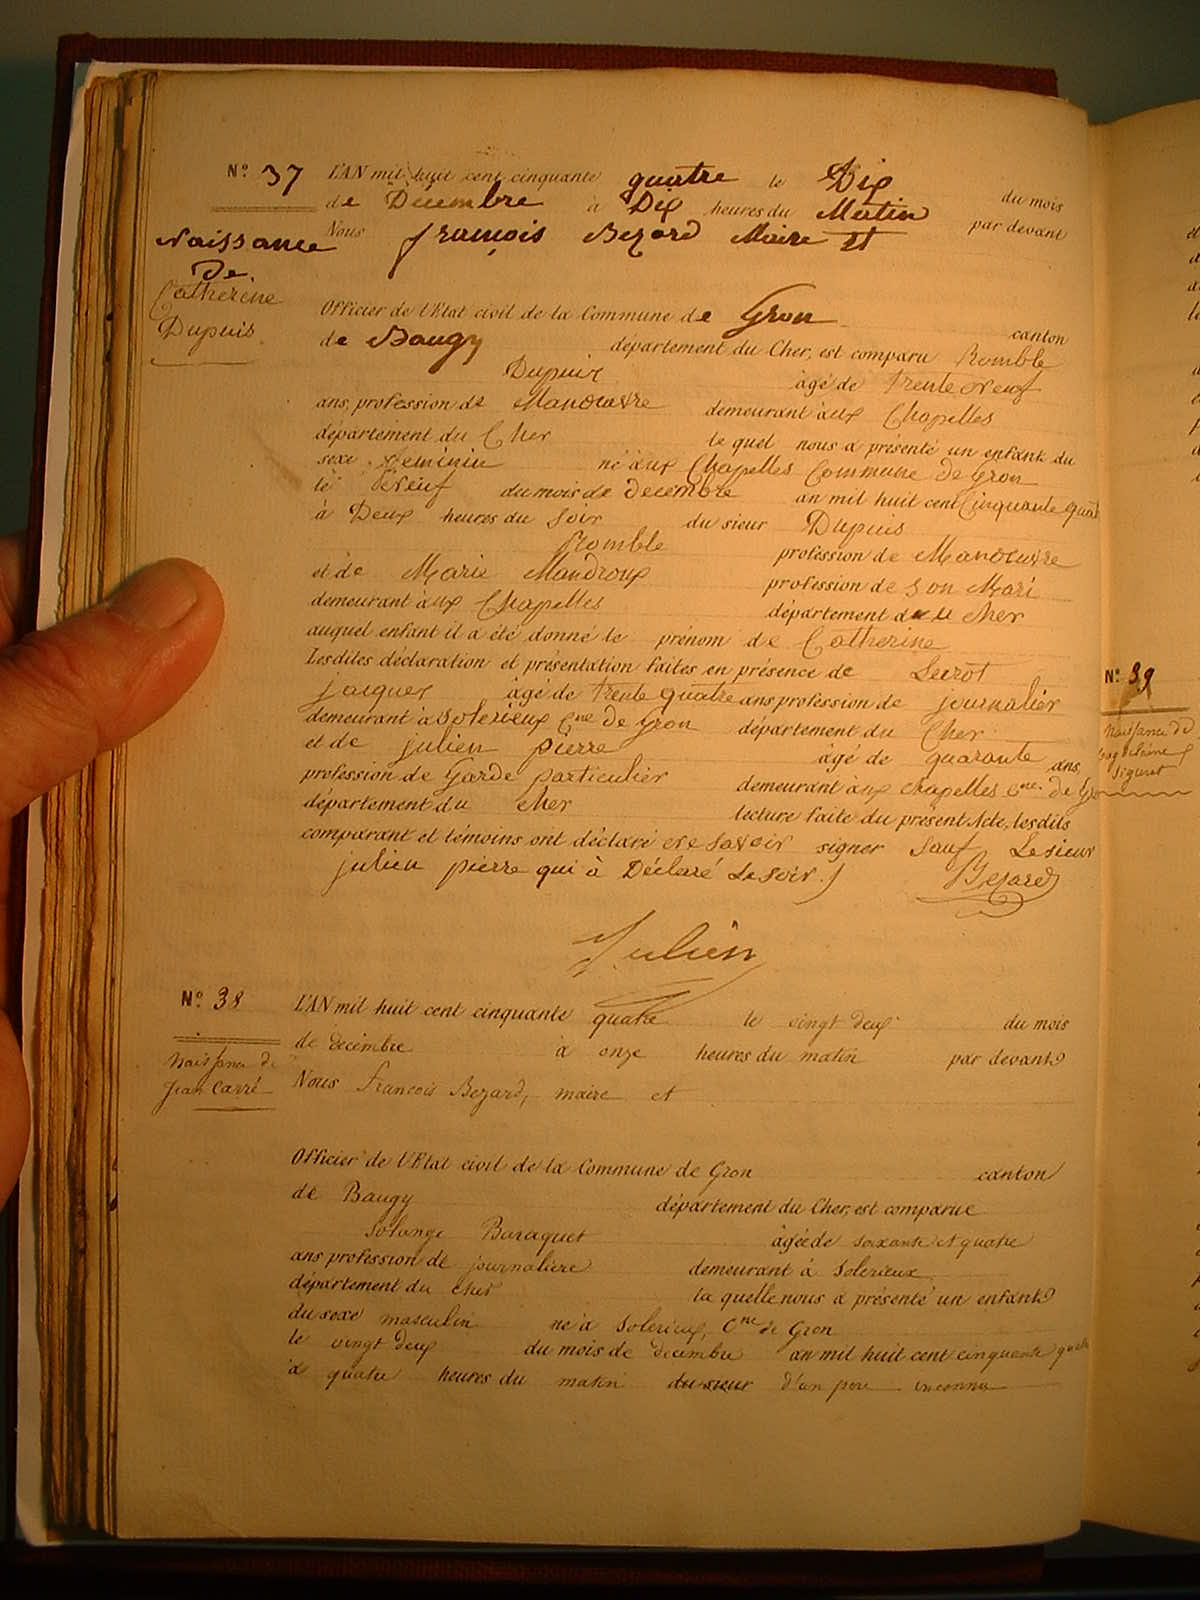 Nº 37
Naissance
De
Catherine
Dupuis
L'AN mil huit cent cinquante quatre le Dix du mois
de Décembre à Dix heures du Matin par devant
Nous françois Bezard Maire et
Officier de l'Etat civil de la Commune de Gron canton
de Baugy département du Cher, est comparu Romble
Dupuis âgé de trente Neuf
ans, profession de Manoeuvre demeurant aux Chapelles
département du Cher le quel nous a présenté un enfant du
sexe feminin né aux Chapelles Commune de Gron
le Neuf du mois de decembre an mil huit cent Cinquante quat
à Deux heures du Soir du sieur Dupuis
Romble profession de Manoeuvre
et de Marie Mandroux profession de son Mari
demeurant aux Chapelles département du Cher
auquel enfant il a été donné le prénom de Catherine
Lesdites déclaration et présentation faites en présence de Lerot
jacques âgé de trente quatre ans profession de journalier
demeurant à Solerieux Cne de Gron département du Cher
et de julien pierre âgé de quarante ans,
profession de Garde particulier demeurant aux chapelles Cne de Gr
département du Cher lecture faite du présent Acte, lesdits
comparant et témoins ont déclaré ne savoir signer Sauf Le sieur
julien pierre qui à Déclaré Le Savoir. Bezard
Julien
Nº 38
Naissance de
Jean Carré
L'AN mil huit cent cinquante quatre le vingt deux du mois
de décembre à onze heures du matin par devant
Nous françois Bezard, maire et
Officier de l'Etat civil de la Commune de Gron canton
de Baugy département du Cher, est comparue
Solange Baraquet âgée de soixante et quatre
ans profession de journalière demeurant à Solerieux
département du cher la quelle nous a présenté un enfant
du sexe masculin né à Solerieux, Cne de Gron
le vingt deux du mois de decembre an mil huit cent cinquante quatre
à quatre heures du matin du sieur d'un père inconnu
Nº 39
Naissance de
Siguret